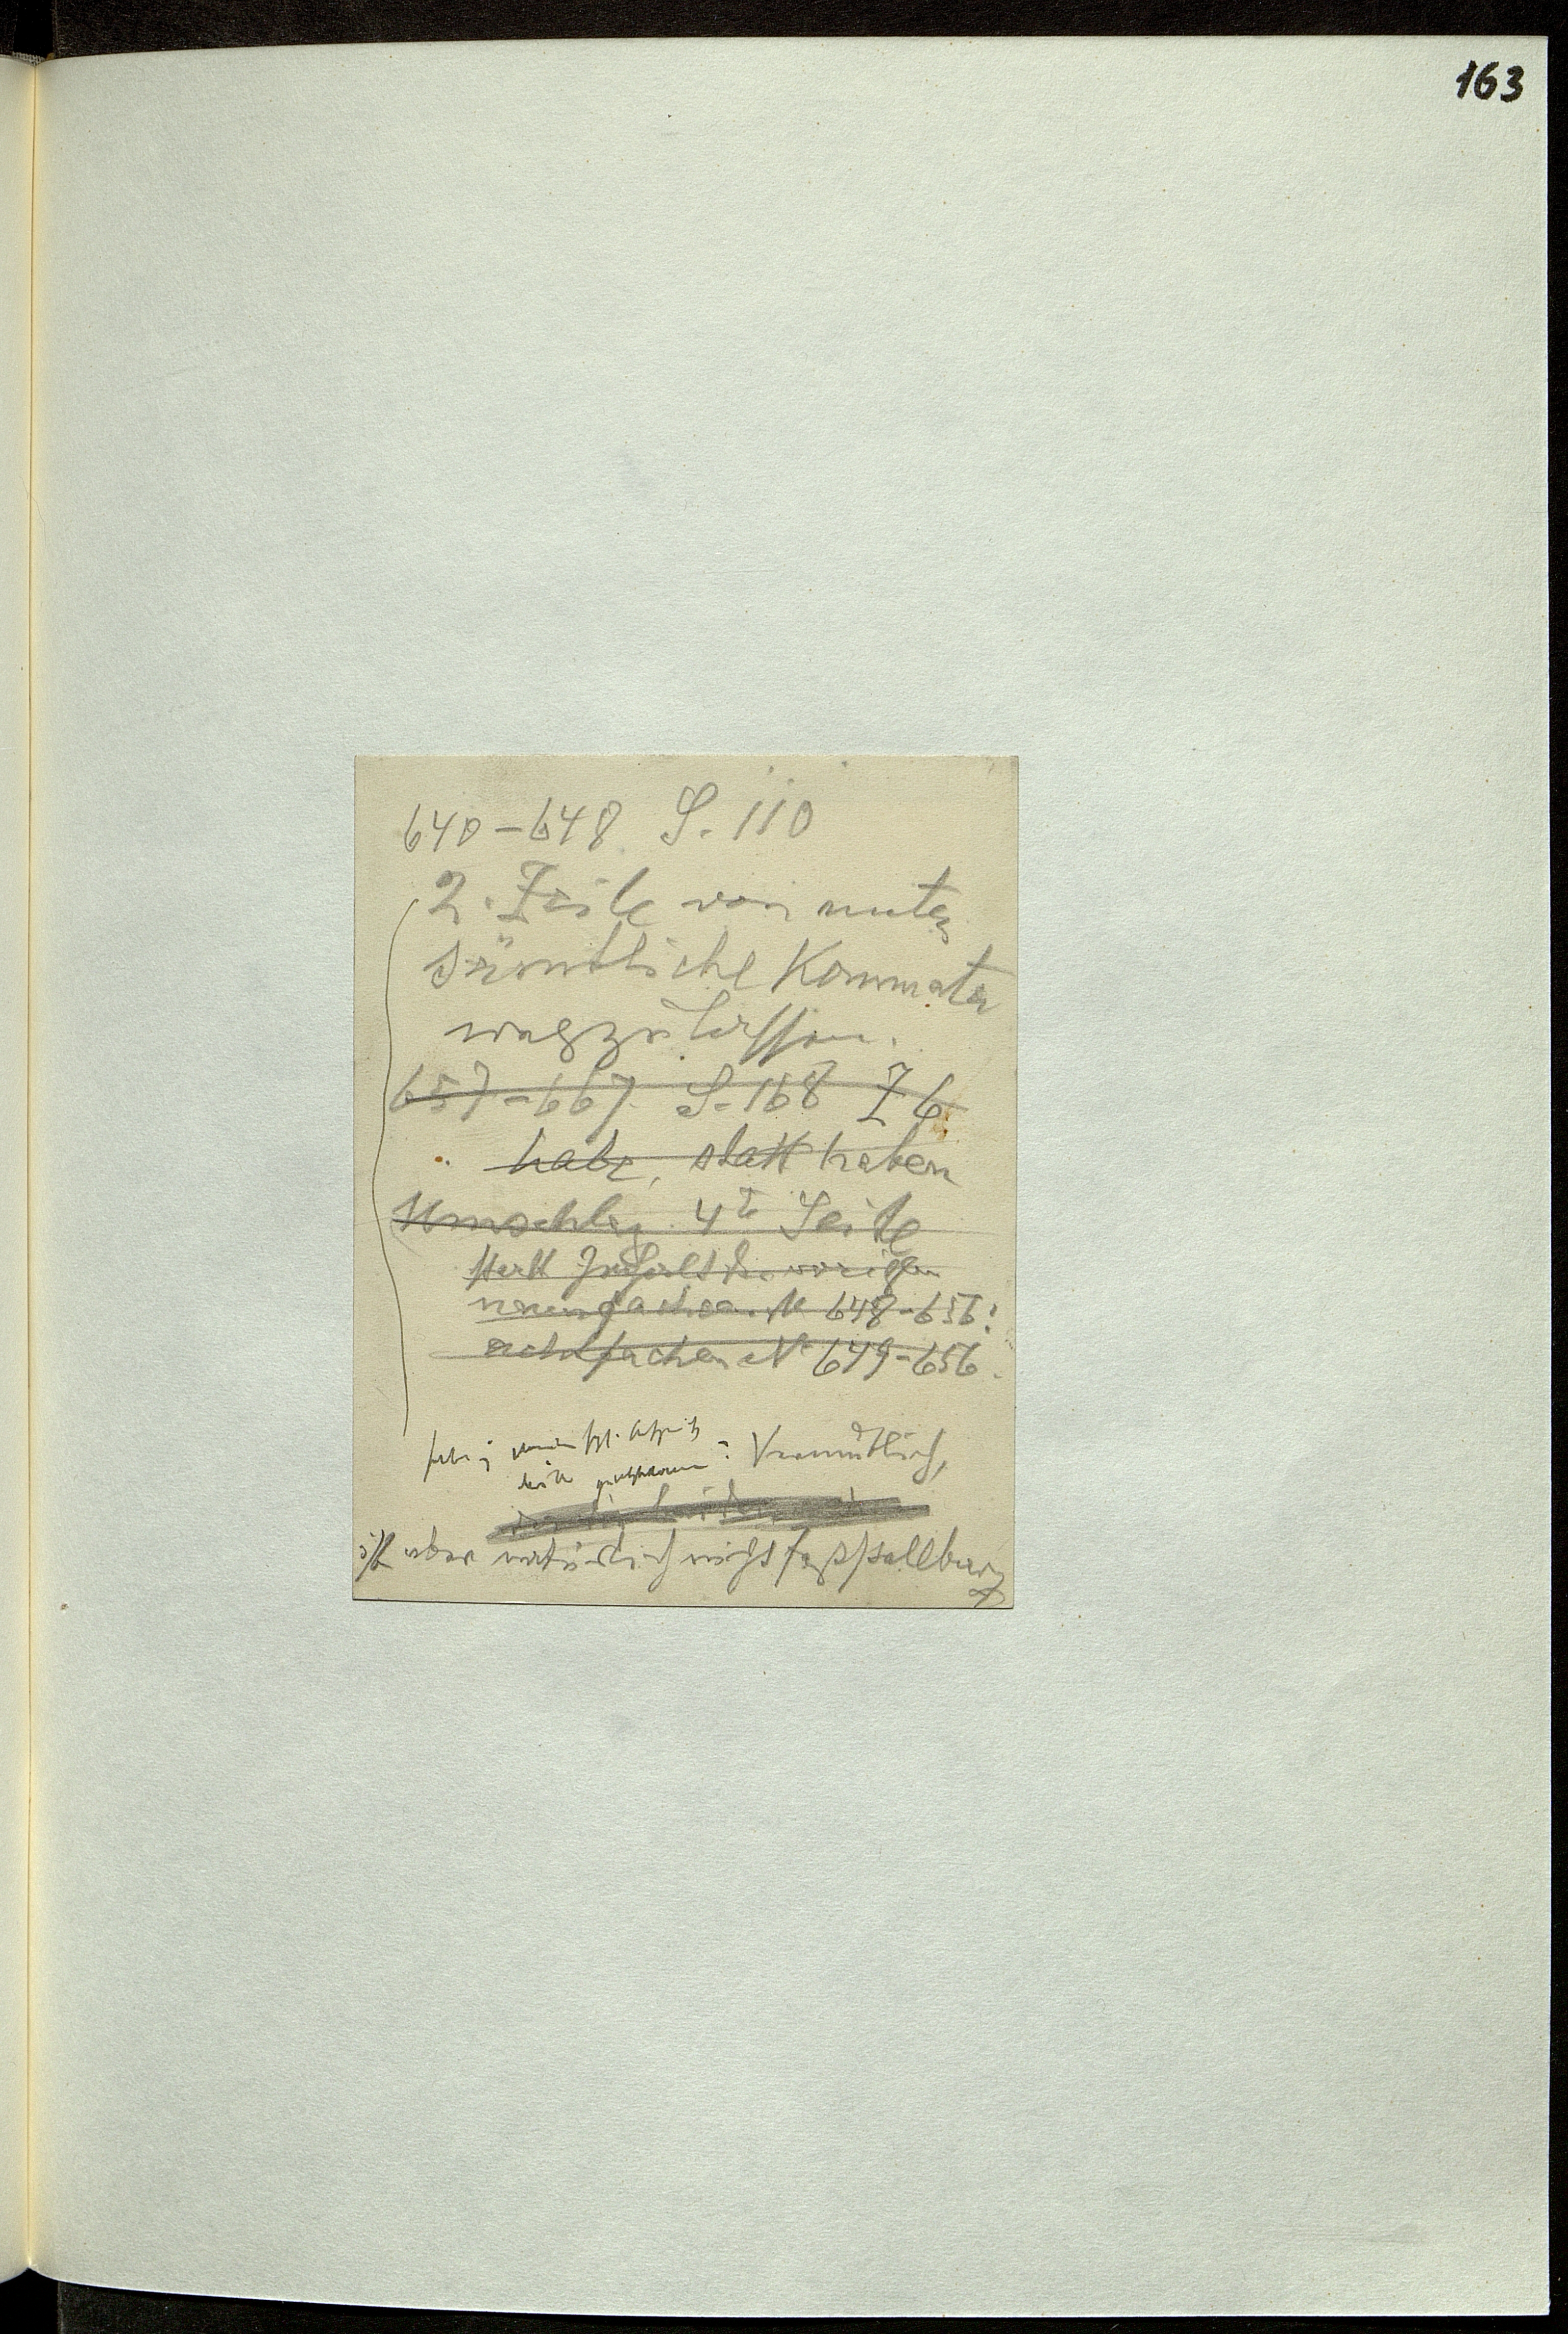 163
640–648 S. 110
2. Zeile von unten
sämtliche Kommata
wegzulassen.
657–667 S. 168 Z 6
habe, statt haben
Umschlag 4te Seite
statt Inhalt des vorigen
neunfachen N 648–656:
achtfachen N 649–656.
Vermutlich,
ist aber natürlich nicht feststellbar